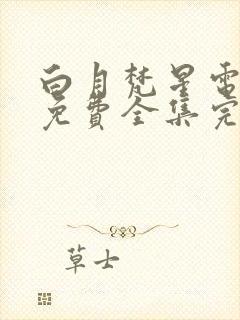 白月梵星電
免費全集完
草士